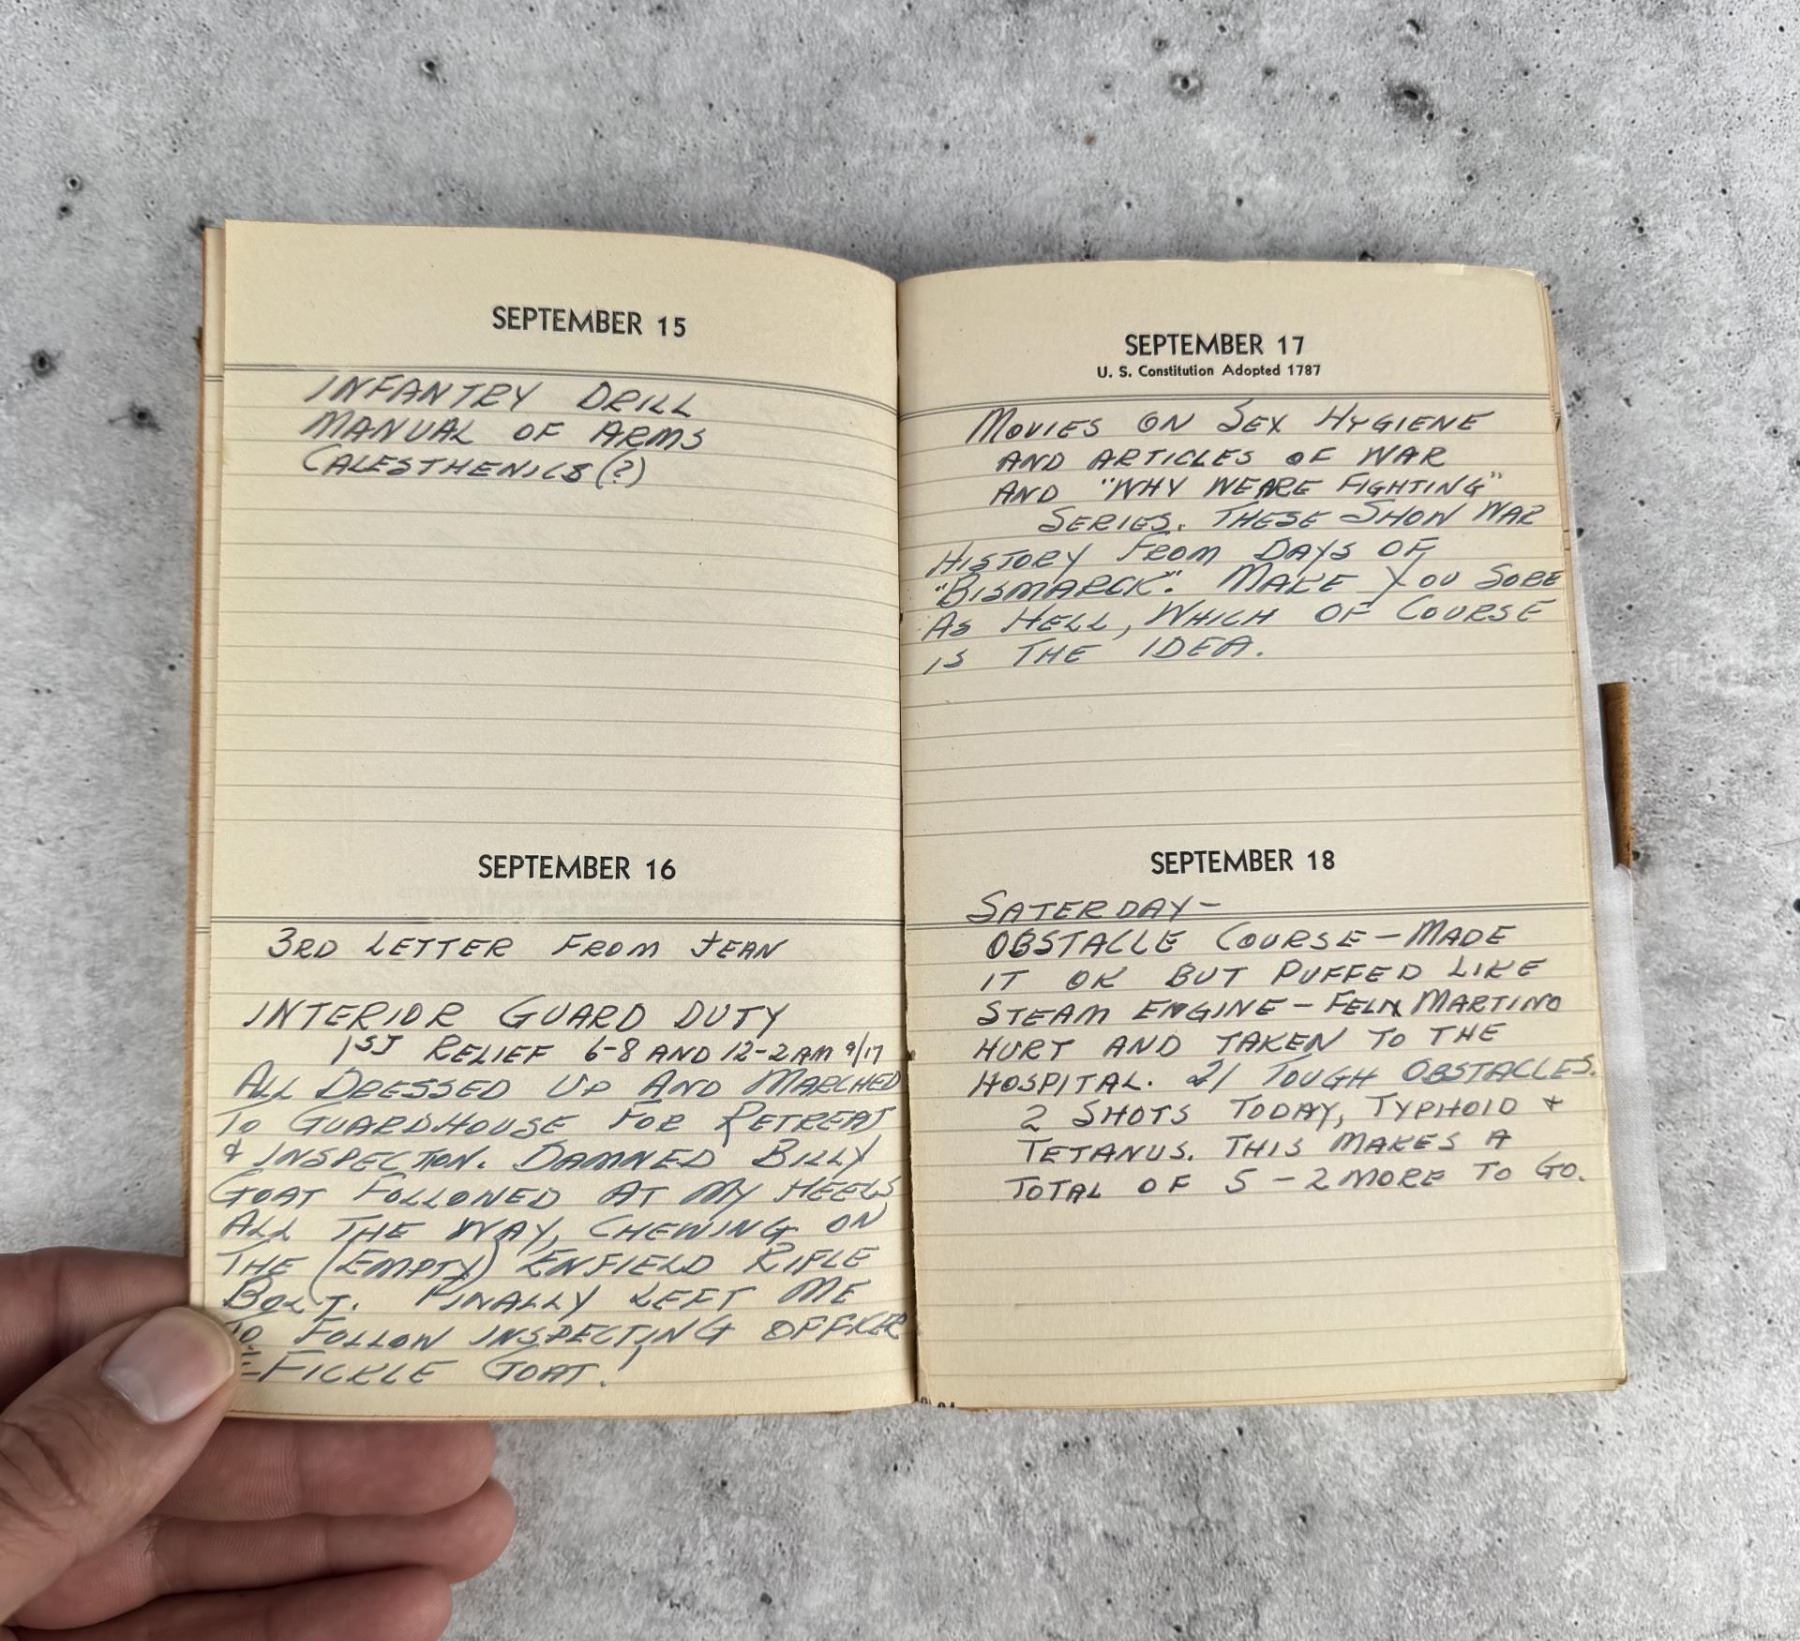 SEPTEMBER 15
INFANTRY DRILL
MANUAL OF ARMS
CALESTHENICS (?)
SEPTEMBER 16
3RD LETTER FROM JEAN
INTERIOR GUARD DUTY
1ST RELIEF 6-8 AND 12-2 AM 9/17
ALL DRESSED UP AND MARCHED
TO GUARDHOUSE FOR RETREAT
& INSPECTION. DAMNED BILLY
GOAT FOLLOWED AT MY HEELS
ALL THE WAY, CHEWING ON
THE (EMPTY) ENFIELD RIFLE
BOLT. FINALLY LEFT ME
TO FOLLOW INSPECTING OFFICER
-FICKLE GOAT!
SEPTEMBER 17
U. S. Constitution Adopted 1787
MOVIES ON SEX HYGIENE
AND ARTICLES OF WAR
AND "WHY WE ARE FIGHTING"
SERIES. THESE SHOW WAR
HISTORY FROM DAYS OF
"BISMARCK". MAKE YOU SORE
AS HELL, WHICH OF COURSE
IS THE IDEA.
SEPTEMBER 18
SATERDAY-
OBSTACLE COURSE - MADE
IT OK BUT PUFFED LIKE
STEAM ENGINE - FELIX MARTINO
HURT AND TAKEN TO THE
HOSPITAL. 21 TOUGH OBSTACLES.
2 SHOTS TODAY, TYPHOID &
TETANUS. THIS MAKES A
TOTAL OF 5 - 2 MORE TO GO.